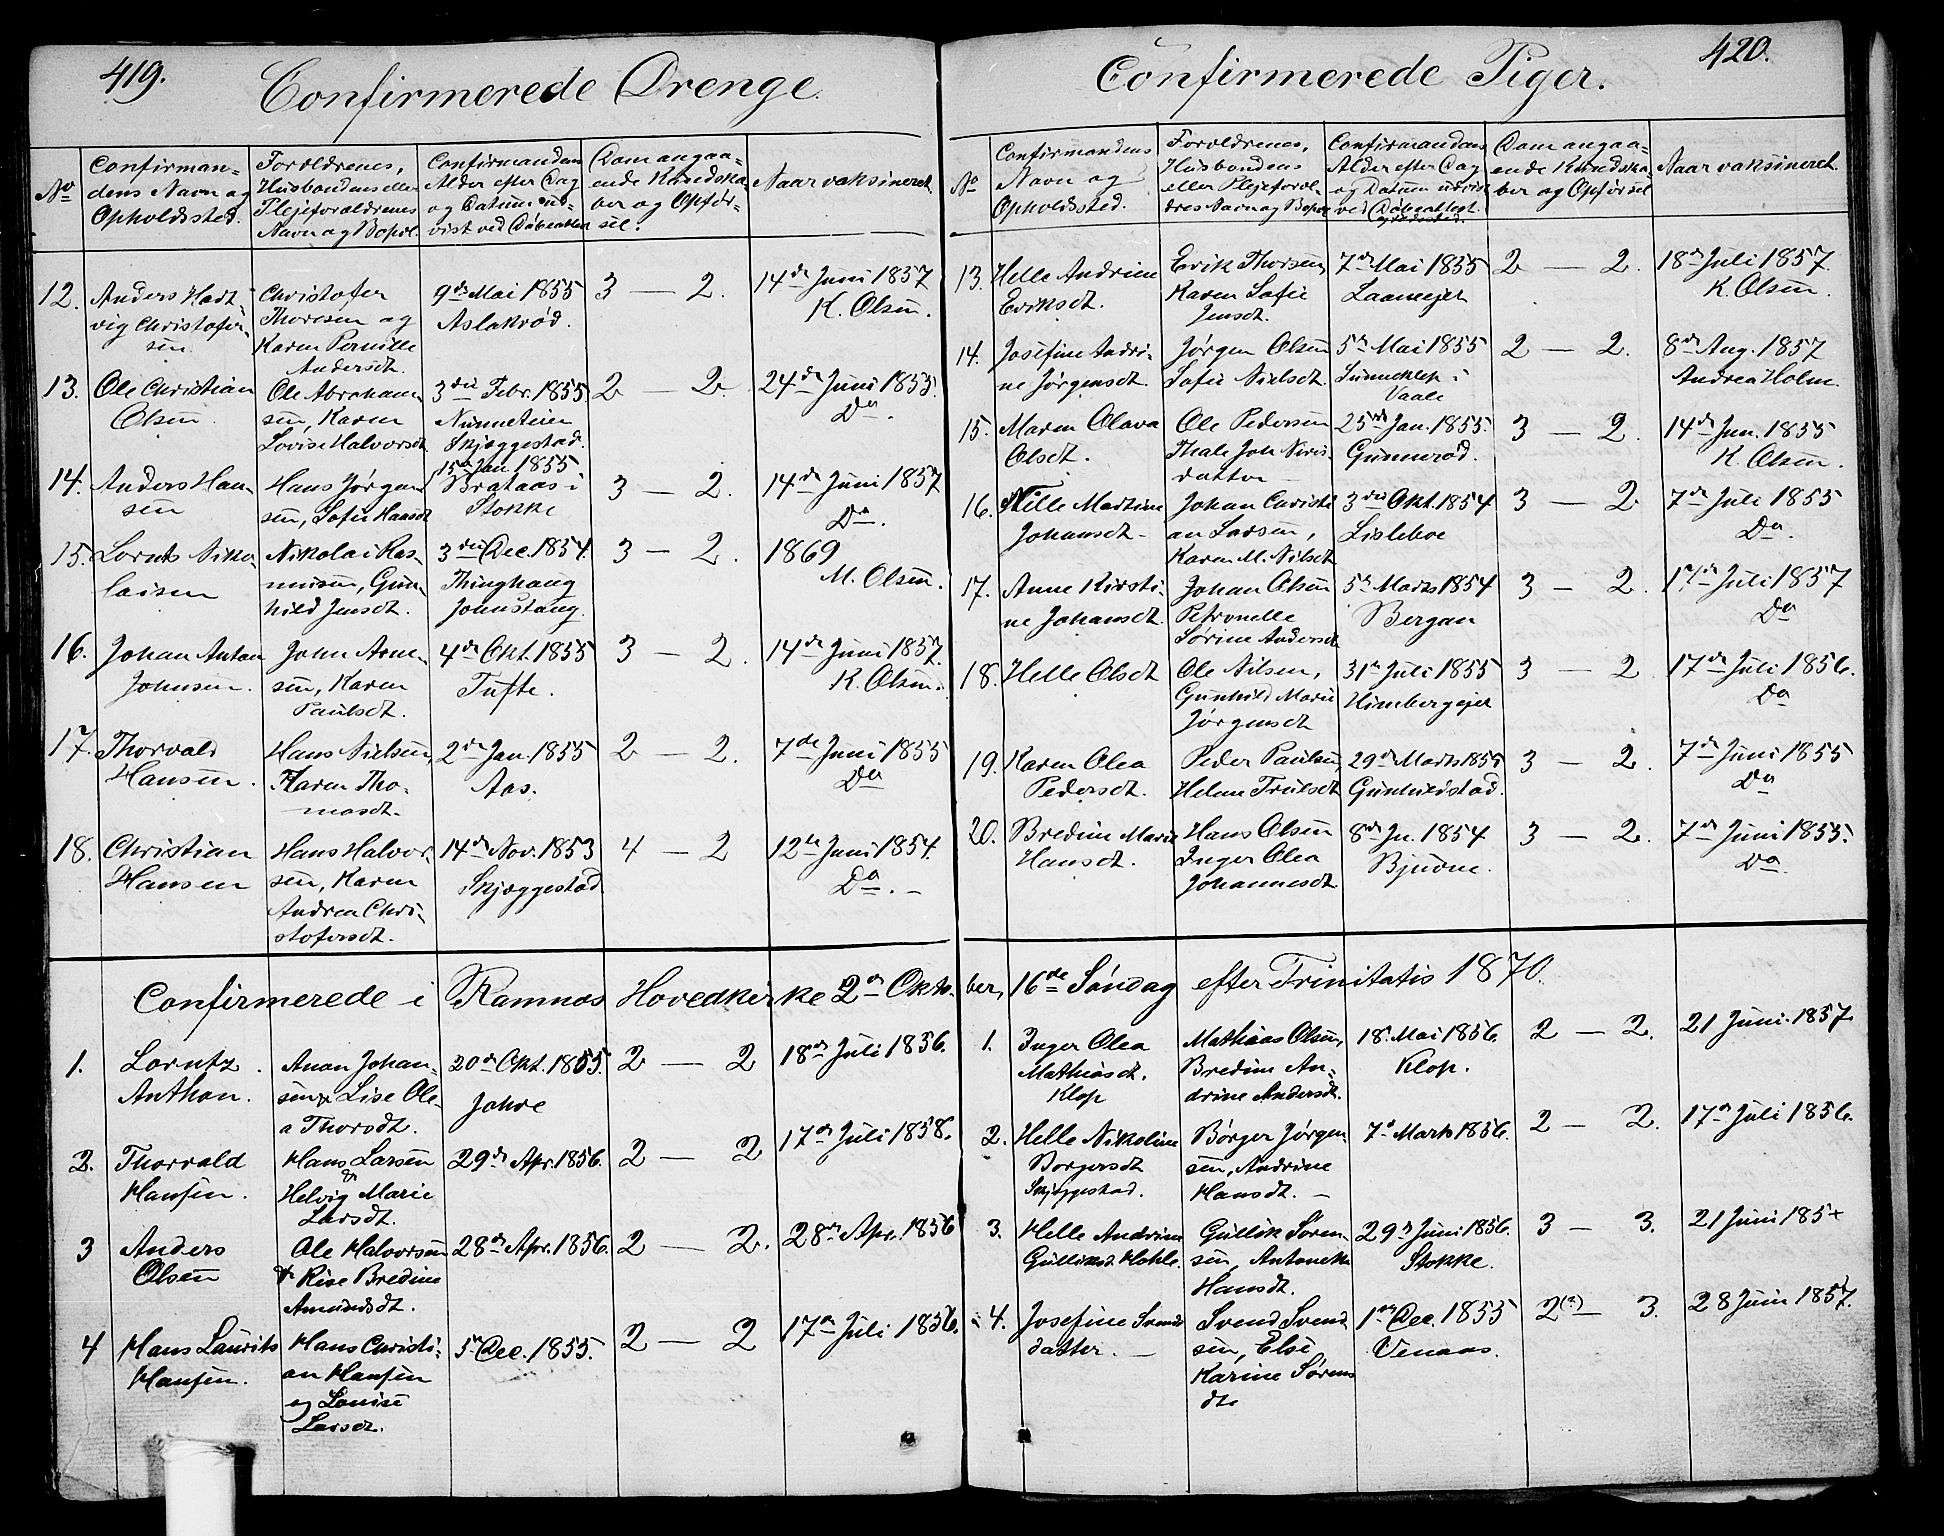 419.
Confirmerede Drenge.
No
Confirman-
dens Navn og
Opholdssted.
Forældrenes,
Husbondens eller
Plejeforældrenes
Navn og Bopæl.
Confirmandens
Alder efter Dag
og Datum ud-
vist ved Døbeattest
Dom angaa-
ende Kundska-
ber og Opfør-
sel.
Naar vaksineret.
12.
Anders Hart-
vig Christofer-
sen.
Christofer
Thoresen og
Karen Pernille
Andersdt.
9de Mai 1855
Aslakrød.
3 — 2.
14de Juni 1857
K. Olsen.
13.
Ole Christian
Olsen.
Ole Abraham-
sen, Karen
Lovise Halvorsdt
3die Febr. 1855
Nünneteien
Skjæggestad.
2 — 2.
24de Juni 1855.
Do.
14.
Anders Han-
sen
Hans Jørgen-
sen, Sofie Hansdt
15de Jan. 1855
Brataas i
Stokke
3 — 2.
14de Juni 1857
Do.
15.
Lornts Niko-
laisen
Nikolai Ras-
mussen, Gun-
hild Jensdt.
3die Dec. 1854.
Thinghaug
Jonnstang.
3 — 2.
1869
M. Olsen.
16.
Johan Anton
Johnsen.
John Arne-
sen, Karen
Paulsdt.
4de Okt. 1855
Tufte.
3 — 2.
14de Juni 1857.
K. Olsen.
17.
Thorvald
Hansen.
Hans Nielsen,
Karen Tho-
masdt.
2de Jan. 1855
Aas.
2 — 2.
7de Juni 1855
Do
18.
Christian
Hansen
Hans Halvor-
sen, Karen
Andrea Chri-
stofersdt.
14de Nov. 1853
Skjæggestad
4 — 2
12te Juni 1854.
Do. —
Confirmerede i Ramnæs Hovedkirke 2den Okto-
1.
Lorntz
Anthon.
Anon Johan-
sen & Lise Ole-
a Thorsdt.
20de Okt. 1855.
Jahre
2 — 2
18de Juli 1856.
2.
Thorvald
Hansen.
Hans Larsen
&
Helvig Marie
Larsdt.
29de Apr. 1856.
2 — 2
17de Juli 1858.
3
Anders
Olsen
Ole Halvorsen
& Rise Bredine
Amundsdt.
28de Apr. 1856.
2 — 2.
28de Apr. 1856
4
Hans Laurits
Hansen.
Hans Christi-
an Hansen
og Louise
Larsdt.
5te Dec. 1855.
2 — 2
17de Juli 1856.
420.
Confirmerede Piger.
No
Confirmandens
Navn og
Opholdssted.
Forældrenes,
Husbondens
eller Plejeforæl-
dres Navn og Bopæl
Confirmandens
Alder efter Dag
og Datum udvist
ved Døbeattest.
Dom angaa-
ende Kundska-
ber og Opførsel
Naar vaksineret.
13.
Helle Andrine
Eriksdt.
Erik Thorsen,
Karen Sofie
Jensdt.
7de Mai 1855
2 — 2.
18de Juli 1857.
K. Olsen.
14.
Josefine Andri-
ne Jørgensdt.
Jørgen Olsen
Sofie Nielsdt.
5te Mai 1855
Vaale
2 — 2.
8de Aug. 1857
Andrea Holm.
15.
Maren Olava
Olsdt.
Ole Pedersen
Thale
datter —
25de Jan. 1855.
Gunnerød.
3 — 2.
14de Jun. 1855
K. Olsen.
16.
Nille Martine
Johansdt —
Johan Christi-
an Larsen,
Karen M. Nilsdt
3die Okt. 1854
Lisleboe
3 — 2.
7de Juli 1855
Do.
17.
Anne Kirsti-
ne Johansdt.
Johan Olsen
Petronelle
Sørine Andersdt
5te Marts 1854
Bergan
3 — 2.
17de Juli 1857
Do
18.
Helle Olsdt
Ole Nilsen,
Gunhild Marie
Jørgensdt
31te Juli 1855
Himbergejer
3 — 2
17de Juli 1856.
Do
19.
Karen Olea
Pedersdt.
Peder Paulsen,
Helene Trulsdt
29de Marts 1855
Gunhildstad.
3 — 2.
7de Juni 1855
Do
20.
Bredine Marie
Hansdt.
Hans Olsen
Inger Olea
Johannesdt.
8de Jn. 1854
Bjuone.
3 — 2.
7de Juni 1855.
Do.
ber, 16de Søndag efter Trinitatis 1870.
1.
Inger Olea
Mathiasdt.
Klop
Mathias Olsen,
Bredine An-
drine Andersdt.
18. Mai 1856.
Klop.
2 — 2.
21 Juni 1857.
2.
Helle Nikoline
Borgersdt
Skjæggestad.
Børger Jørgen-
sen, Andrine
Hansdt. —
7de Marts 1856.
2 — 2.
17de Juli 1856.
3.
Helle Andrine
Gulliksdt. Hohle.
Gullik Søren-
sen, Antonette
Hansdt.
29de Juni 1856.
Stokke.
3 — 3.
21 Juni 185+
4.
Josefine Svends-
datter. —
Svend Svend-
sen, Else
Karine Sørens
dt.
1ste Dec. 1855
Venaas.
2(?) — 3.
28 Juni 1857.